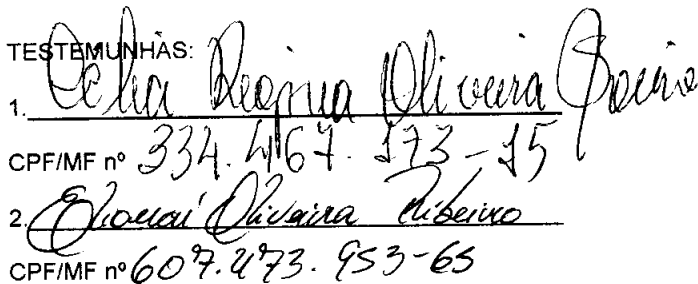 TESTEMUNHAS:
1. Célia Regina Oliveira
CPF/MF nº 334.467.173-15
2. Oliveira Ribeiro
CPF/MF nº 607.473.953-65